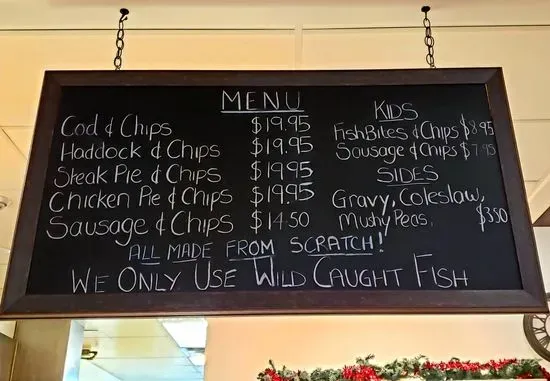 MENU
Cod & Chips $19.95
Haddock & Chips $19.95
Steak Pie & Chips $19.95
Chicken Pie & Chips $19.95
Sausage & Chips $14.50
KIDS
Fish Bites & Chips $8.95
Sausage & Chips $7.95
SIDES
Gravy, Coleslaw,
Mushy Peas, $3.50
ALL MADE FROM SCRATCH!
WE ONLY USE WILD CAUGHT FISH